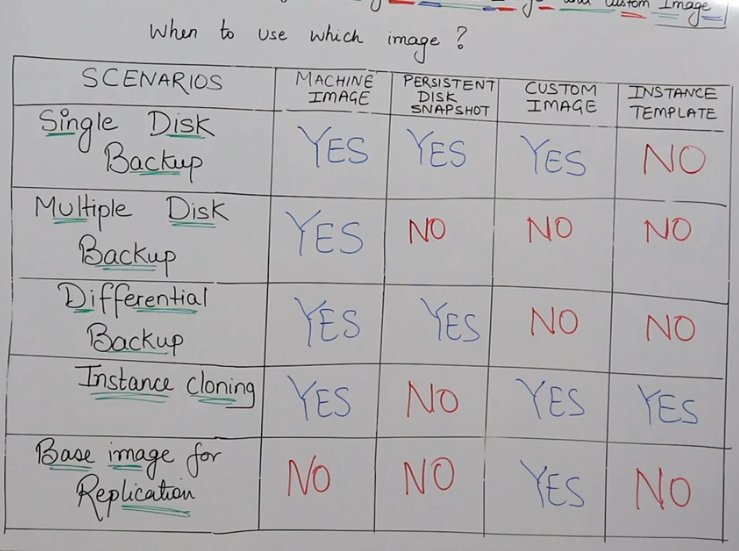 and Custom Image
When to use which image?
SCENARIOS MACHINE IMAGE PERSISTENT DISK SNAPSHOT CUSTOM IMAGE INSTANCE TEMPLATE
Single Disk Backup YES YES YES NO
Multiple Disk Backup YES NO NO NO
Differential Backup YES YES NO NO
Instance cloning YES NO YES YES
Base image for Replication NO NO YES NO